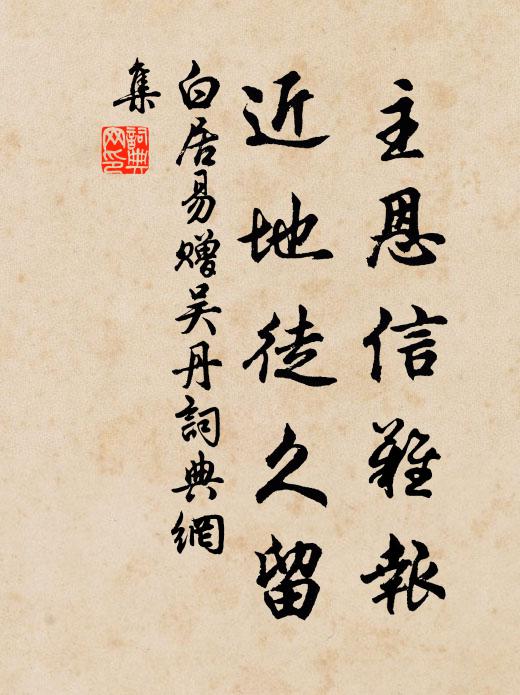 主恩信難報
近地徒久留
白居易赠吴丹詞典網
集
詞典网印